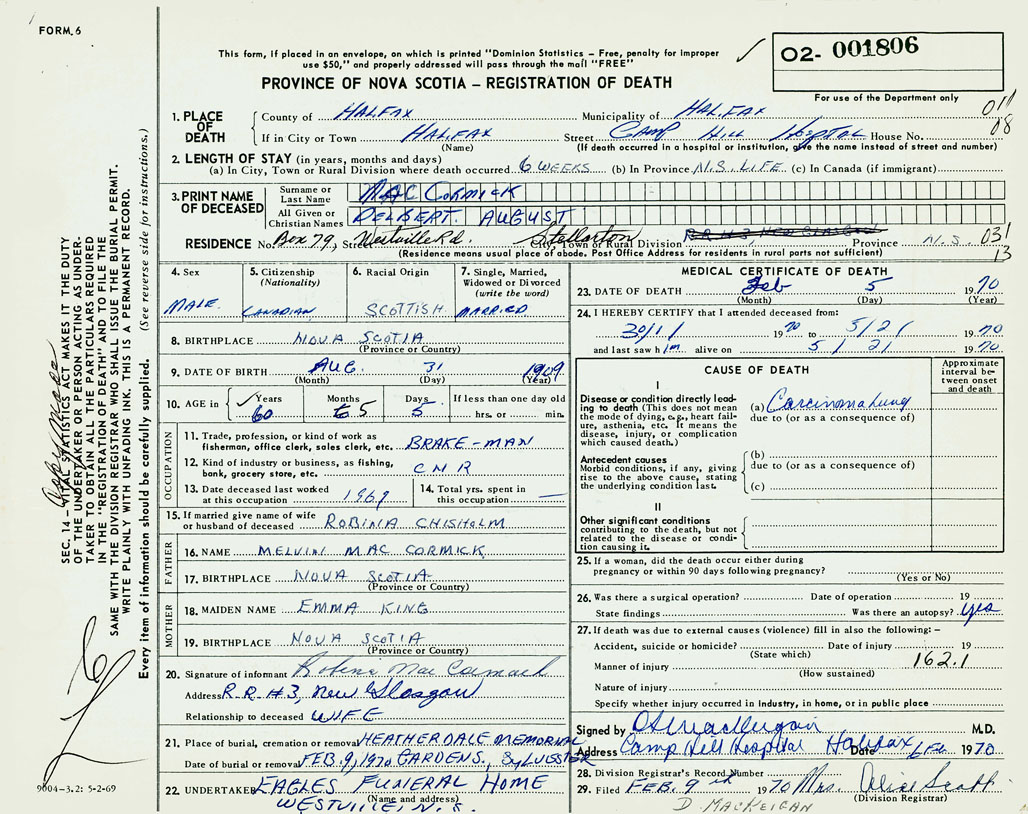 FORM. 6
This form, if placed in an envelope, on which is printed "Dominion Statistics – Free, penalty for improper
use $50," and properly addressed will pass through the mail "FREE"
PROVINCE OF NOVA SCOTIA – REGISTRATION OF DEATH
O2- 001806
For use of the Department only
011
08
1. PLACE OF DEATH
County of HALIFAX Municipality of HALIFAX
If in City or Town HALIFAX Street Camp Hill Hospital House No.
(Name) (If death occurred in a hospital or institution, give the name instead of street and number)
2. LENGTH OF STAY (in years, months and days)
(a) In City, Town or Rural Division where death occurred 6 WEEKS (b) In Province N.S. LIFE (c) In Canada (if immigrant)
3. PRINT NAME OF DECEASED
Surname or Last Name MAC CORMICK
All Given or Christian Names DELBERT. AUGUST
RESIDENCE No. Box 79, St. Westville Rd. Stellarton City, Town or Rural Division R.R #3 NEW GLASGOW Province N.S 031
13
(Residence means usual place of abode. Post Office Address for residents in rural parts not sufficient)
4. Sex
MALE
5. Citizenship
(Nationality)
CANADIAN
6. Racial Origin
SCOTTISH
7. Single, Married,
Widowed or Divorced
(write the word)
MARRIED
8. BIRTHPLACE NOVA SCOTIA
(Province or Country)
9. DATE OF BIRTH AUG. 31 1909
(Month) (Day) (Year)
10. AGE in Years 60 Months 5 Days 5 If less than one day old
hrs. or min.
OCCUPATION
11. Trade, profession, or kind of work as
fisherman, office clerk, sales clerk, etc. BRAKE-MAN
12. Kind of industry or business, as fishing,
bank, grocery store, etc. CNR
13. Date deceased last worked
at this occupation 1969
14. Total yrs. spent in
this occupation —
15. If married give name of wife
or husband of deceased ROBINA CHISHOLM
FATHER
16. NAME MELVIN MAC CORMICK
17. BIRTHPLACE NOVA SCOTIA
(Province or Country)
MOTHER
18. MAIDEN NAME EMMA KING
19. BIRTHPLACE NOVA SCOTIA
(Province or Country)
20. Signature of informant Robina Mac Cormack
Address R.R #3, New Glasgow
Relationship to deceased WIFE
21. Place of burial, cremation or removal HEATHERDALE MEMORIAL
Date of burial or removal FEB. 9, 1970 GARDENS, SYLVESTER
22. UNDERTAKER EAGLES FUNERAL HOME
(Name and address)
WESTVILLE, N.S.
MEDICAL CERTIFICATE OF DEATH
23. DATE OF DEATH Feb 5 1970
(Month) (Day) (Year)
24. I HEREBY CERTIFY that I attended deceased from:
30/1/ 1970 to 5/2/ 1970
and last saw him alive on 5/2/ 1970
CAUSE OF DEATH
Approximate
interval be-
tween onset
and death
I
Disease or condition directly lead-
ing to death (This does not mean
the mode of dying, e.g., heart fail-
ure, asthenia, etc. It means the
disease, injury, or complication
which caused death.)
(a) Carcinoma Lung
due to (or as a consequence of)
Antecedent causes
Morbid conditions, if any, giving
rise to the above cause, stating
the underlying condition last.
(b)
due to (or as a consequence of)
(c)
II
Other significant conditions
contributing to the death, but not
related to the disease or condi-
tion causing it.
25. If a woman, did the death occur either during
pregnancy or within 90 days following pregnancy?
(Yes or No)
26. Was there a surgical operation? Date of operation 19
State findings Was there an autopsy? yes
27. If death was due to external causes (violence) fill in also the following: –
Accident, suicide or homicide? Date of injury 19
(State which)
162.1
Manner of injury
(How sustained)
Nature of injury
Specify whether injury occurred in industry, in home, or in public place
Signed by M.D.
Address Camp Hill Hospital Halifax Date 1970
28. Division Registrar's Record Number
29. Filed FEB. 9 1970 Mrs. Alice Scott
(Division Registrar)
D. MACKEIGAN
SEC. 14 – VITAL STATISTICS ACT MAKES IT THE DUTY
OF THE UNDERTAKER OR PERSON ACTING AS UNDER-
TAKER TO OBTAIN ALL THE PARTICULARS REQUIRED
IN THE "REGISTRATION OF DEATH" AND TO FILE THE
SAME WITH THE DIVISION REGISTRAR WHO SHALL ISSUE THE BURIAL PERMIT.
WRITE PLAINLY WITH UNFADING INK. THIS IS A PERMANENT RECORD.
Every item of information should be carefully supplied. (See reverse side for instructions.)
9004-3.2: 5-2-69